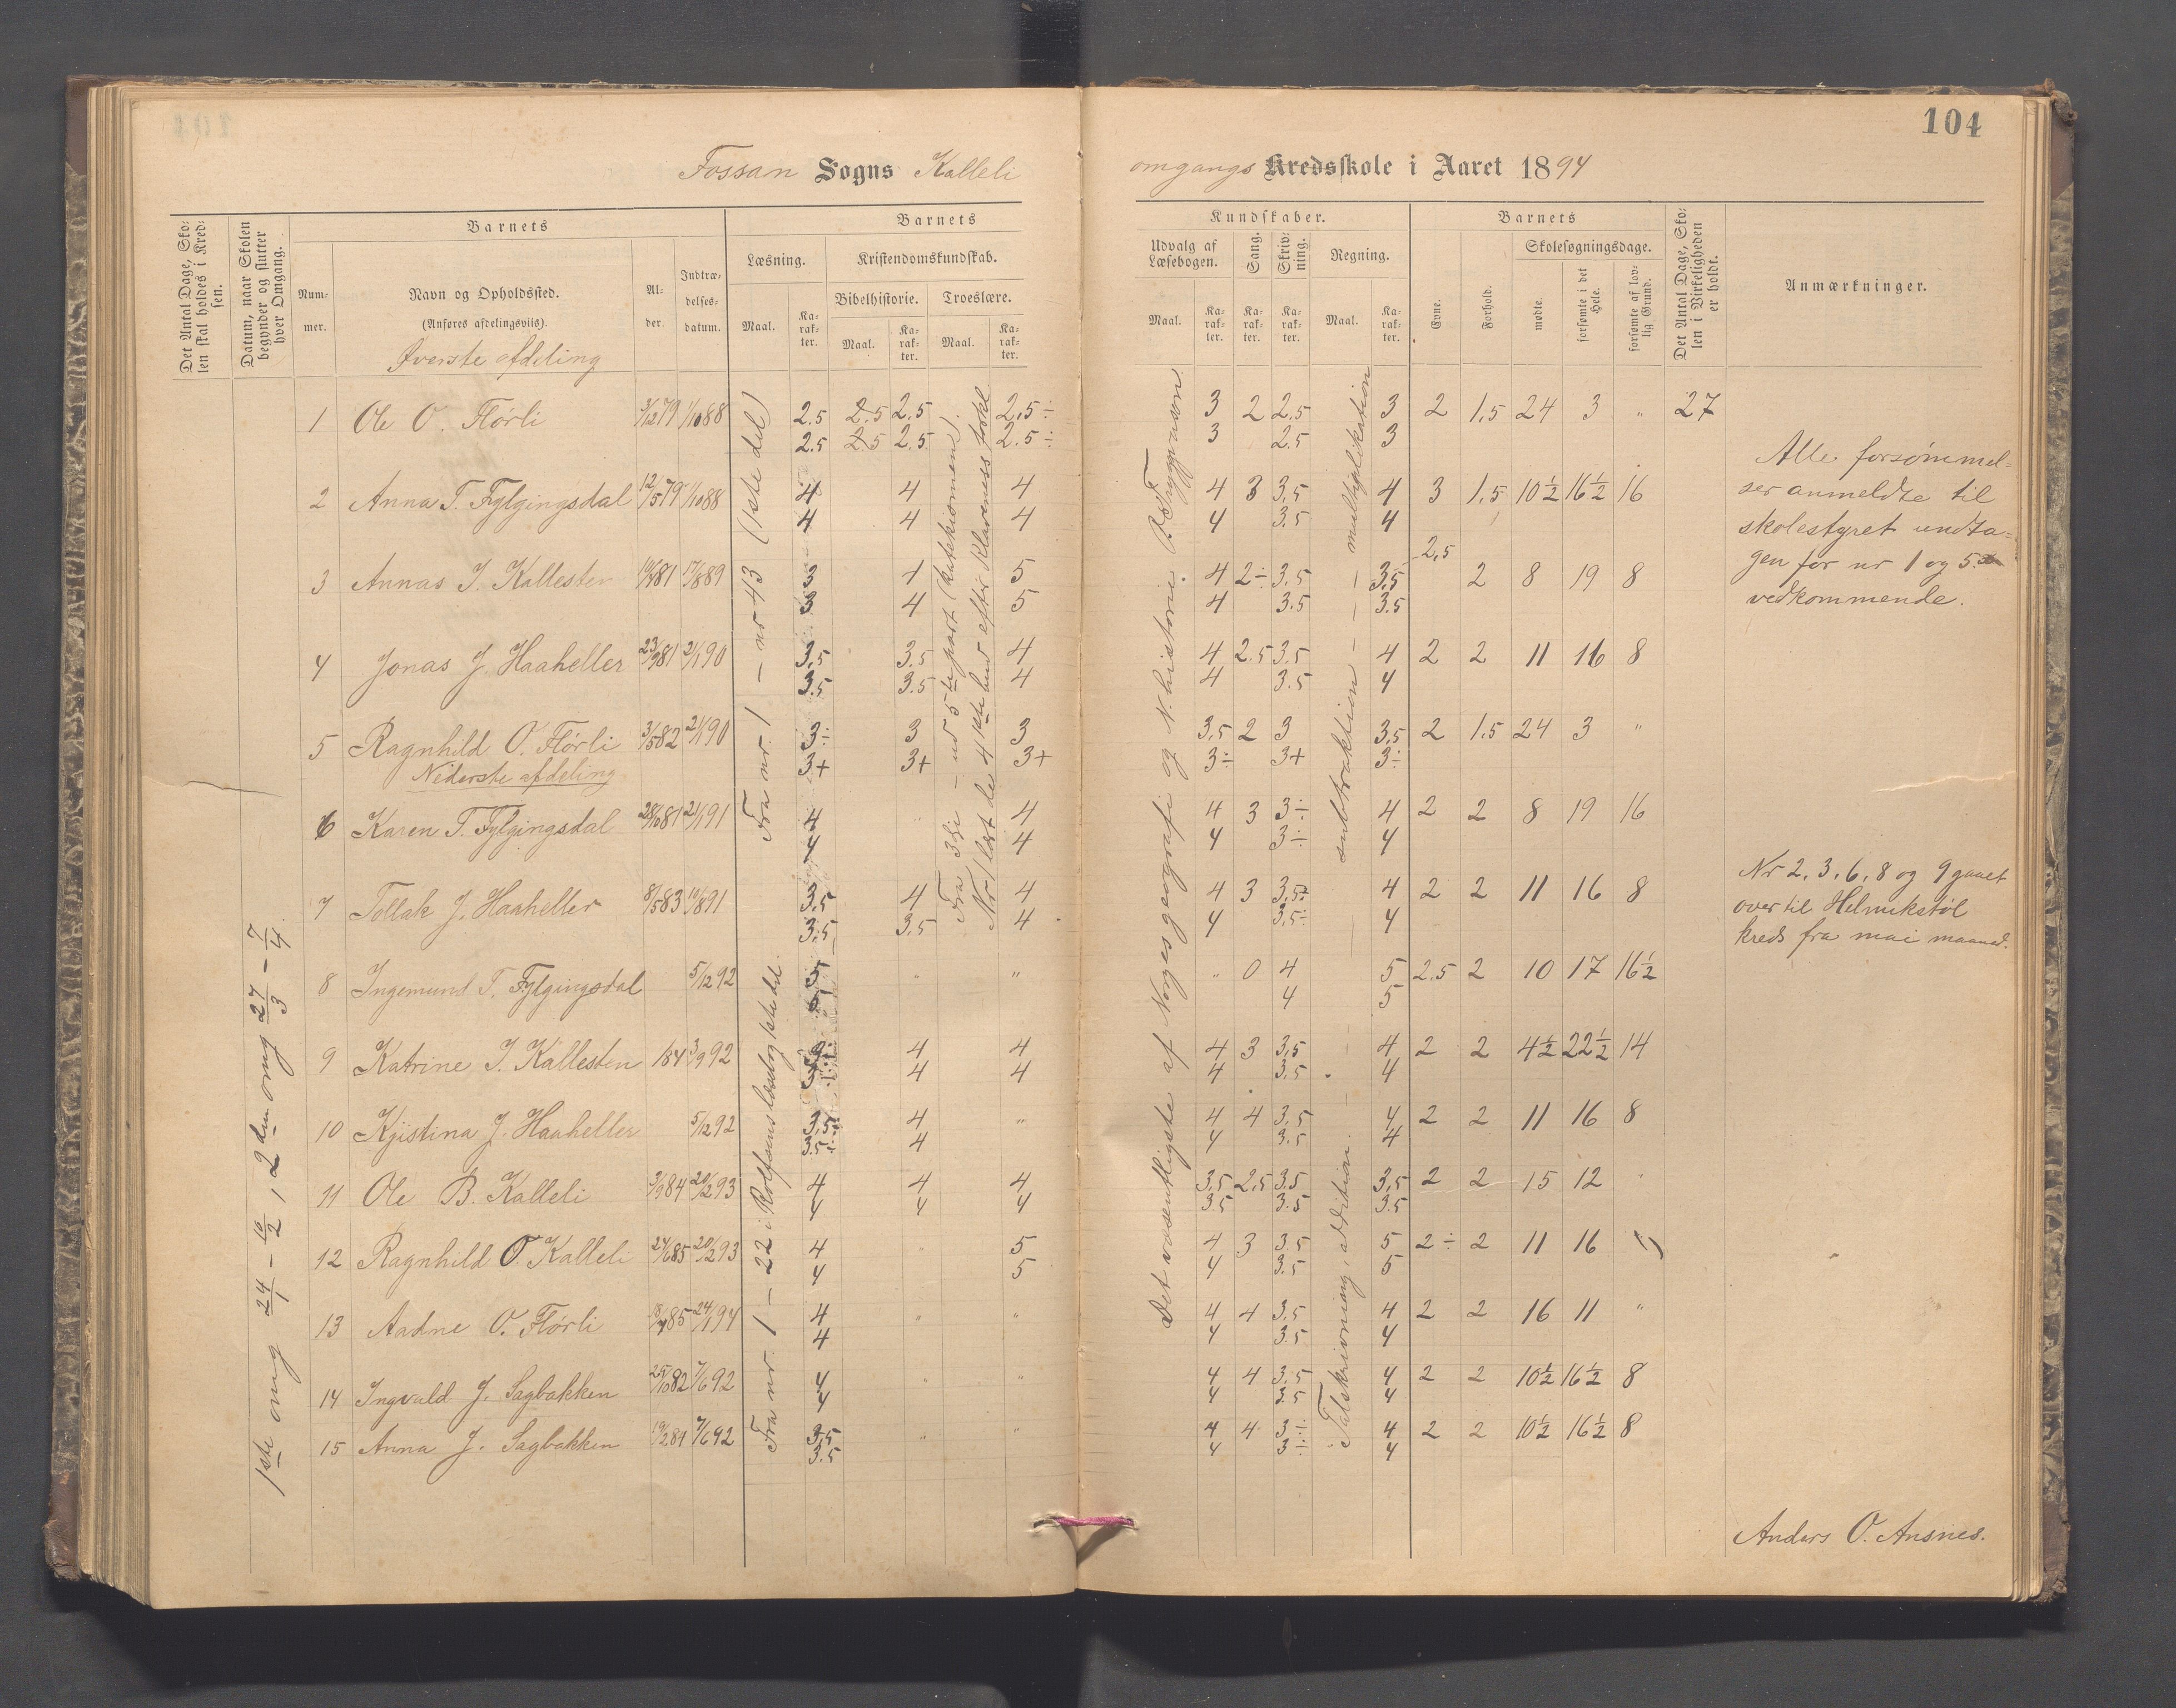 104
Fossan Sogns Kalleli omgangs Kredsskole i Aaret 1894
Det Antal Dage, Sko-
len skal holdes i Kred-
sen.
Datum, naar Skolen
begynder og slutter
hver Omgang.
Barnets
Num-
mer.
Navn og Opholdssted.
(Anføres afdelingsviis).
Al-
der.
Indtræ-
delses-
datum.
Barnets
Læsning.
Kristendomskundskab.
Bibelhistorie. Troeslære.
Maal. Ka-
rak-
ter. Maal. Ka-
rak-
ter. Maal. Ka-
rak-
ter.
Kundskaber.
Udvalg af
Læsebogen.
Sang.
Skriv-
ning.
Regning.
Maal. Ka-
rak-
ter. Ka-
rak-
ter. Ka-
rak-
ter. Maal. Ka-
rak-
ter.
Barnets
Evne.
Forhold.
Skolesøgningsdage.
mødte.
forsømte i det
Hele.
forsømte af lov-
lig Grund.
Det Antal Dage, Sko-
len i Virkeligheden
er holdt.
Anmærkninger.
Øverste afdeling
1 Ole O. Flørli 3/12 79 1/10 88 2.5 2.5 2.5 2,5÷ 3 2 2,5 3 2 1,5 24 3 „ 27
2.5 2.5 2.5 2.5÷ 3 2.5 3
2 Anna T. Fylgingsdal 12/5 79 1/10 88 4 4 4 4 3 3,5 4 3 1,5 10½ 16½ 16
4 4 4 4 3.5 4
3 Annas J. Kallesten 81 17/8 89 3 4 5 4 2÷ 3,5 3,5 2,5 2 8 19 8
3 4 5 4 3.5 3.5
4 Jonas J. Haaheller 23/9 81 2/1 90 3,5 3,5 4 4 2.5 3,5 4 2 2 11 16 8
3.5 3.5 4 4 3.5 4
5 Ragnhild O. Flørli 3/5 82 2/1 90 3÷ 3 3 3,5 2 3 3,5 2 1.5 24 3 „
3+ 3+ 3+ 3÷ 3+ 3÷
Nederste afdeling
6 Karen T. Fylgingsdal 28/10 81 2/1 91 4 4 4 3 3÷ 4 2 2 8 19 16
4 4 4 3÷ 4
7 Tollak J. Haaheller 8/5 83 10/8 91 3,5 4 4 4 3 3,5÷ 4 2 2 11 16 8
3,5 3,5 4 4 3,5÷ 4
8 Ingemund T. Fylgingsdal 5/12 92 5 „ „ „ 0 4 5 2.5 2 10 17 16½
5 4 5
9 Katrine J. Kallesten 84 3/9 92 4 4 4 3 3,5 4 2 2 4½ 22½ 14
4 4 4 3.5 4
10 Kjistina J. Haaheller 5/12 92 3,5÷ 4 „ 4 4 3,5 4 2 2 11 16 8
3.5÷ 4 4 3.5 4
11 Ole B. Kalleli 3/9 84 20/2 93 4 4 4 3,5 2,5 3.5 3,5 2 2 15 12 „
4 4 4 3.5 3.5 3.5
12 Ragnhild O. Kalleli 24/6 85 20/2 93 4 „ 5 4 3 3.5 5 2÷ 2 11 16
4 5 4 3.5 5
13 Aadne O. Flørli 85 24/1 94 4 „ „ 4 4 3,5 4 2 2 16 11 „
4 4 3.5 4
14 Ingvald J. Sagbakken 25/10 82 7/6 92 4 „ „ 4 4 3,5 4 2 2 10½ 16½ 8
4 4 3.5 4
15 Anna J. Sagbakken 19/2 84 7/6 92 3,5 „ „ 4 4 3÷ 4 2 2 10½ 16½ 8
3.5 4 3÷ 4
1ste omg 24/1 – 10/2, 2den omg 27/3 – 7/4.
Fra nr. 1 – nr 43 (1ste del)
Fra nr. 1 – 22 i Rolfsens læsebog 1ste del.
Fra 3die – ud 5te part (katekismen).
Nr 1 læst de 4 første bud efter Klaveness forkl
Det væsentligste af Norges geografi og N. historie. O. Trygvason
subtraktion – – – multiplikation
Talskrivning, addition. –
Alle forsømmel-
ser anmeldte til
skolestyret undta-
gen for nr 1 og 5
vedkommende.
Nr 2, 3, 6, 8 og 9 gaaet
over til Helmikstøl
kreds fra mai maaned.
Anders O. Ansnes.